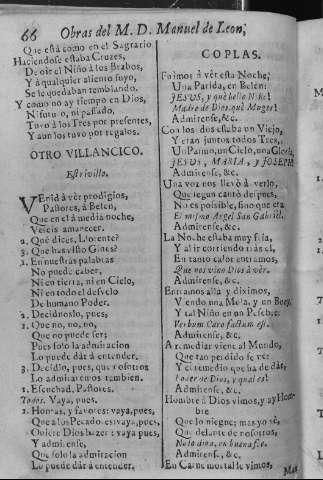 66 Obras del M. D. Manuel de Leon,
Que està como en el Sagrario
Haciendose estaba Cruzes,
De oir el Niño à los Brabos,
Y à qualquier aliento suyo,
Se le quedaban temblando.
Y como no ay tiempo en Dios,
Ni futuro, ni passado,
Tuvo à los Tres por presentes,
Y aun los tuvo por regalos.
OTRO VILLANCICO.
Estrivillo.
VEnid à vèr prodigios,
Pastores, à Belèn,
Que en el à media noche,
Vereis amanecer.
2. Què dices, Llorente?
3. Què has visto Gines?
1. En nuestras palabras
No puede caber,
Ni en tierra, ni en Cielo,
Ni en todo el desvelo
De humano Poder.
2. Decidnoslo, pues,
1. Que no, no, no,
Que no puede ser;
Pues solo la admiracion
Lo puede dàr à entender.
3. Decidlo, pues, que nosotros
Lo admiraremos tambien.
1. Escuchad, Pastores.
Todos. Vaya, pues.
1. Honras, y favores: vaya, pues,
Que à los Pecadores: vaya, pues,
Quiere Dios hazer: vaya pues,
Y admirense,
Que solo la admiracion
Lo puede dàr à entender.
COPLAS.
Fuimos à vèr esta Noche,
Una Parida, en Belèn:
JESUS, y què bello Niño!
Madre de Dios, què Muger!
Admirense, &c.
Con los dos estaba un Viejo,
Y eran juntos todos Tres,
Un Palmo, un Cielo, una Gloria,
JESUS, MARIA, y JOSEPH.
Admirense &c.
Una voz nos llevò à verlo,
Que segun cantò despues,
No es possible, sino que era
El mismo Angel San Gabriel.
Admirense, &c.
La Noche estaba muy fria,
Y al ir corriendo tràs el,
En tanto calor entramos,
Que nos vino Dios à vèr.
Admirense, &c.
Entramos allà, y diximos,
Viendo una Mula, y un Buey,
Y tal Niño en un Pesebre:
Verbum Caro factum est.
Admirense, &c.
A remediar viene al Mundo,
Que tan perdido se vè:
Y el remedio que ha de dàr,
Poder de Dios, y qual es!
Admirense, &c.
Hombre à Dios vimos, y ay Hombre
Que lo niegue; mas yo sè,
Que delante de nosotros,
No lo dirà, en buena fè.
Admirense, &c.
En Carne mortal le vimos,
Mas